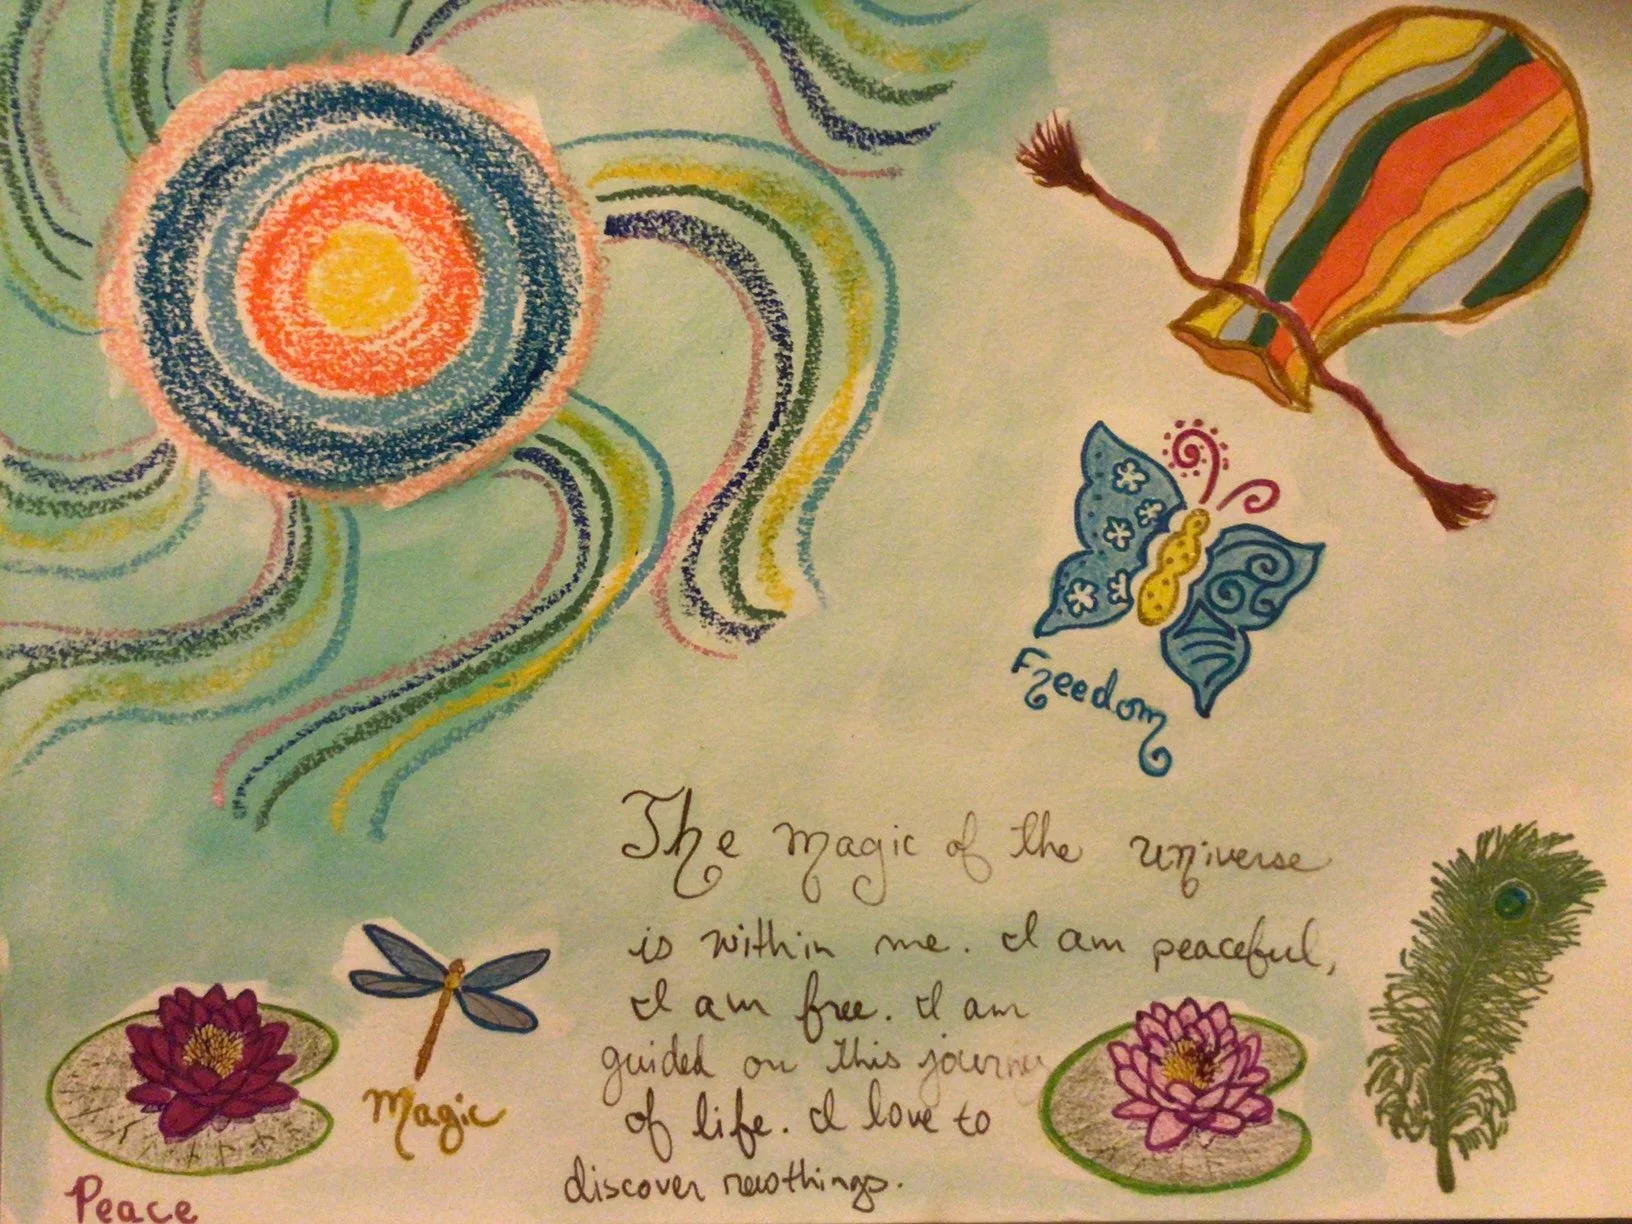 Freedom
The magic of the universe
is within me. I am peaceful,
I am free. I am
guided on this journey
of life. I love to
discover new things.
Magic
Peace